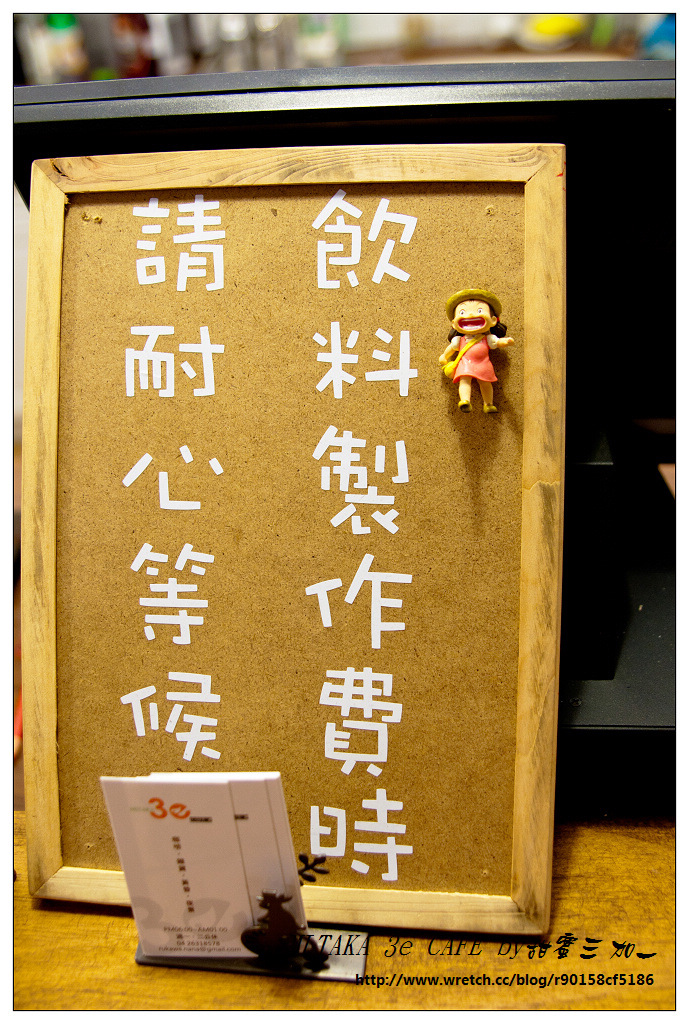 飲料製作費時
請耐心等候
3e
PM06:00~AM01:00
TAKA 3e CAFE by甜蜜三加一
http://www.wretch.cc/blog/r90158cf5186